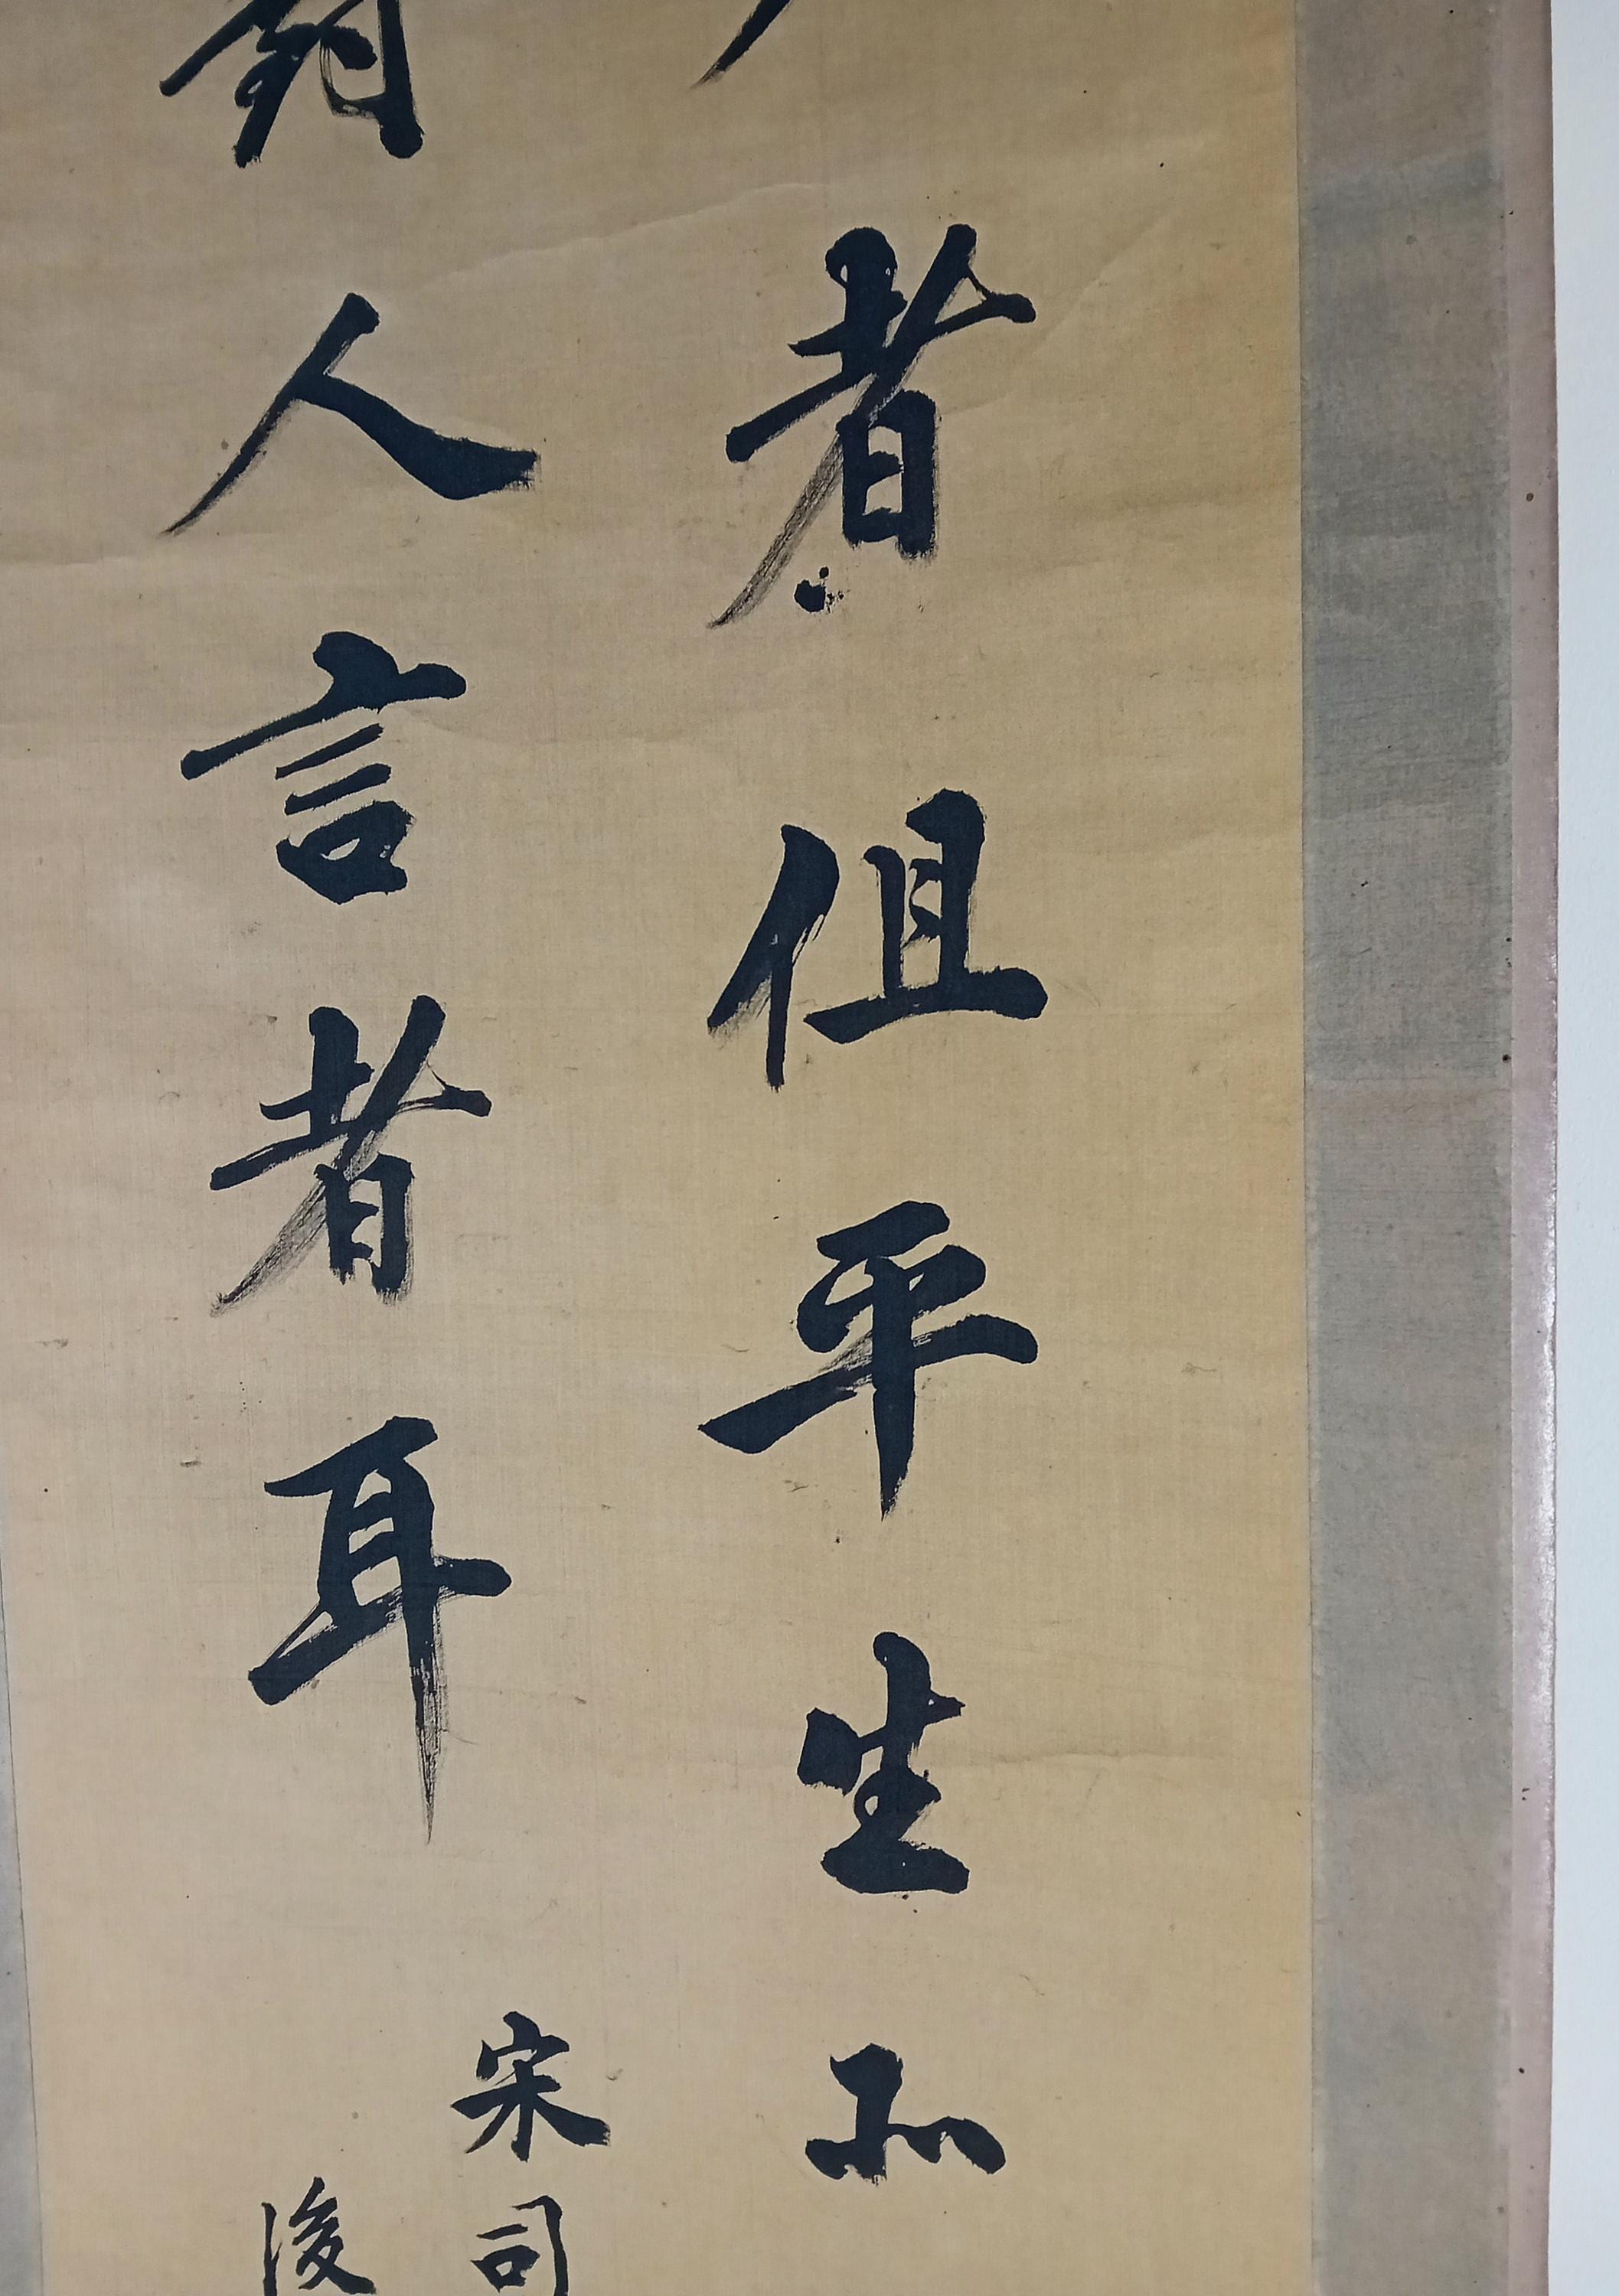 者但平生所
對人言者耳
宋司
後